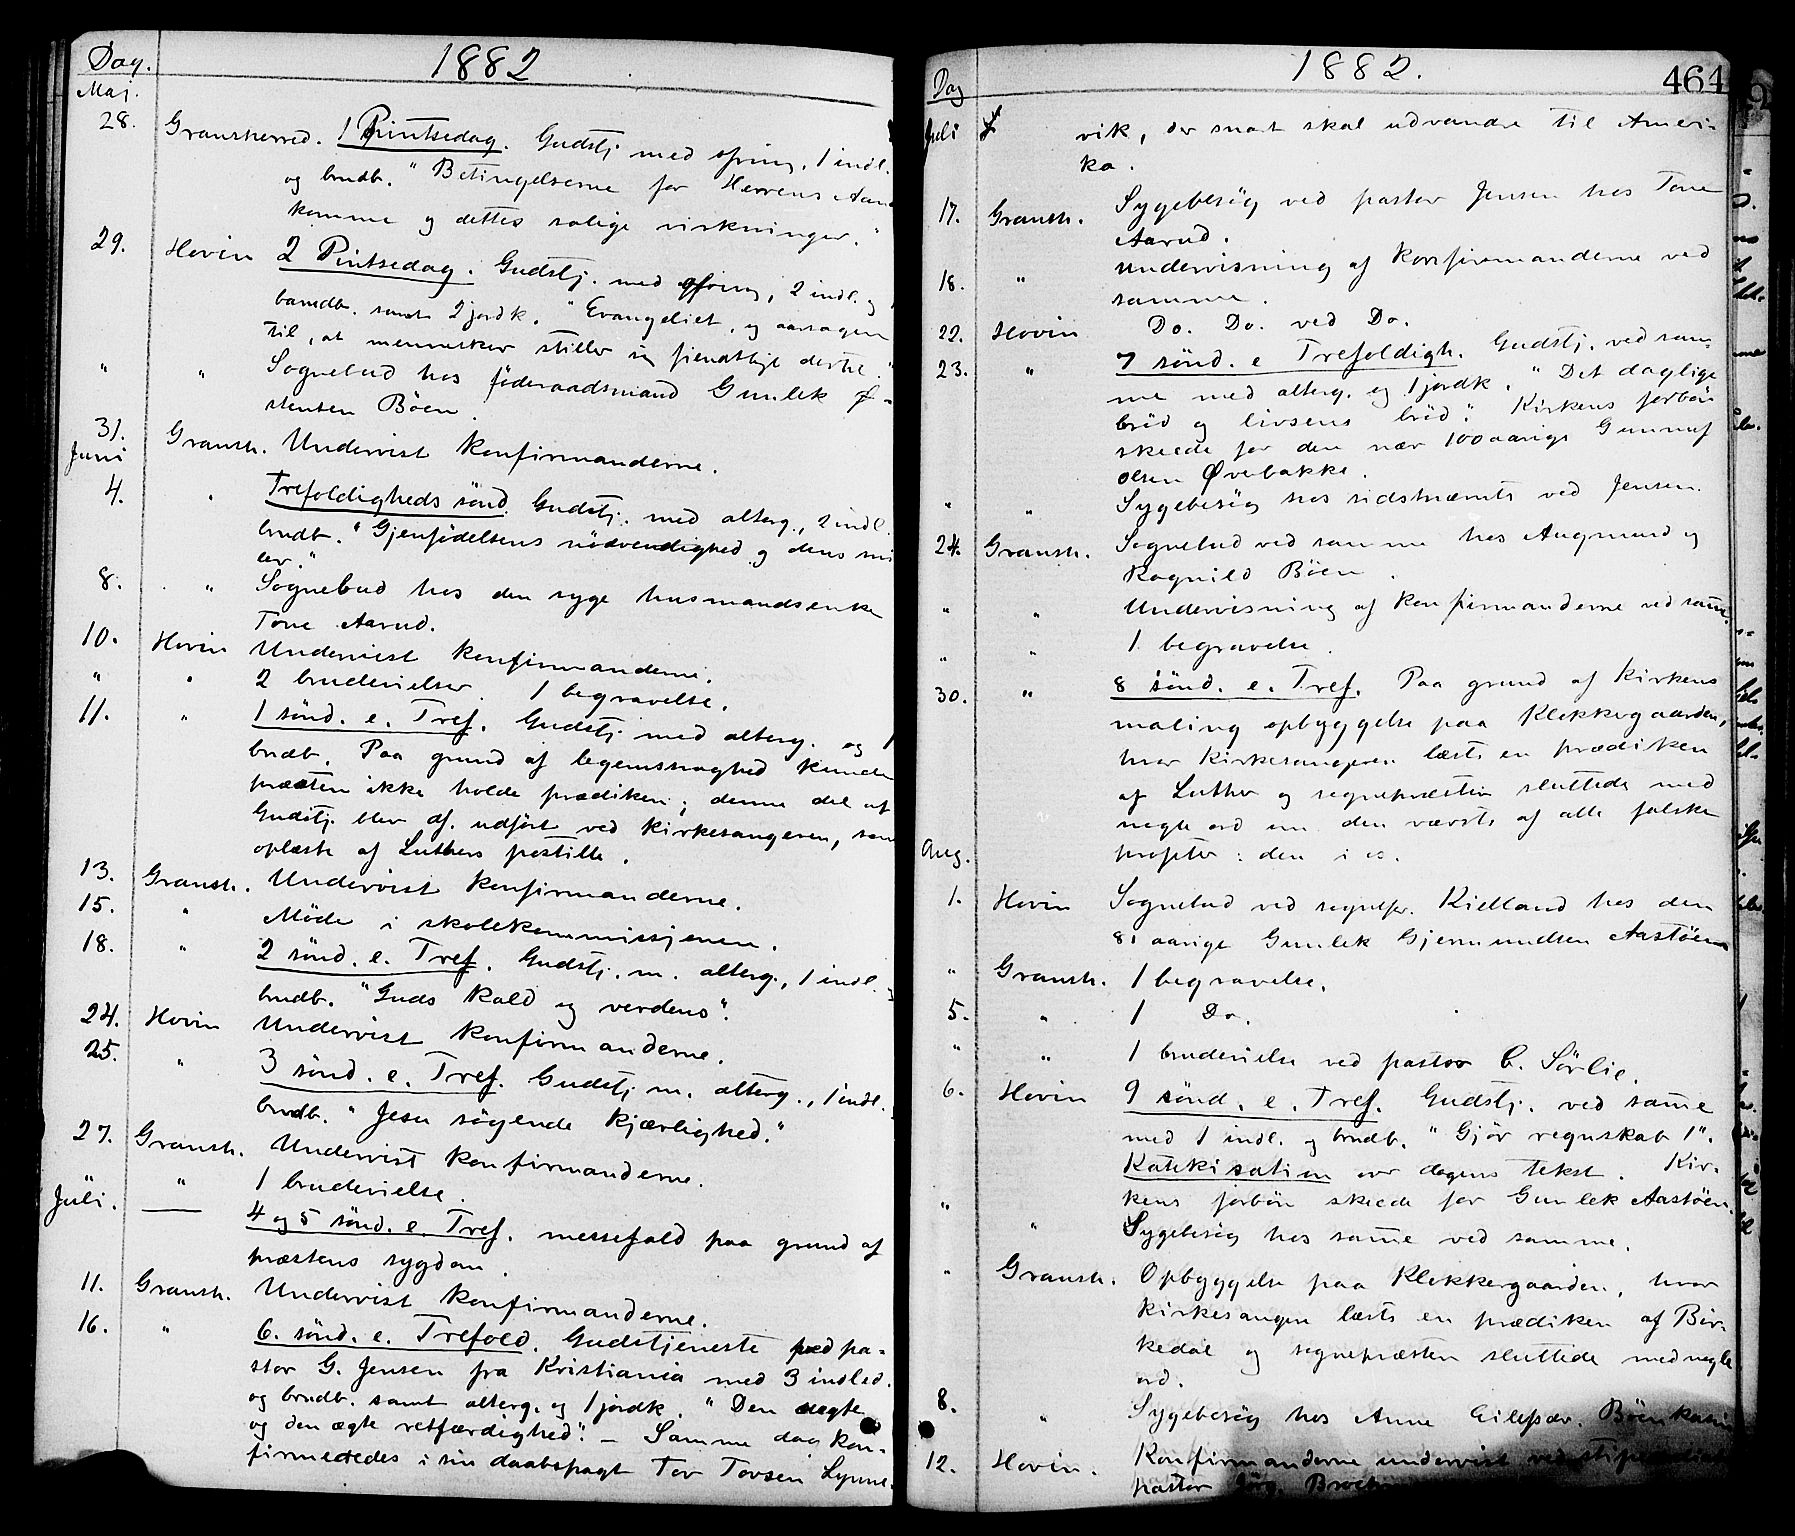 Dag. 1882
Maj.
28. Gransherred. 1 Pintsedag. Gudstj med ofring, 1 indl.
og brudb. "Betingelserne for Herrens Aand
komme og dettes salige virkninger."
29. Hovin 2 Pintsedag. Gudstj. med ofring, 2 indl. og 1
barndb. samt 2 jordk. "Evangeliet, og aarsagen
til, at mennesker stiller sig fiendtligt dertil."
" " Sognebud hos föderaadsmand Gunlek Ø-
stensen Böen.
31. Gransh. Undervist Konfirmanderne.
Juni
4. " Trefoldigheds sönd. Gudstj. med alterg., 2 indl.
brudb. "Gjenfödelsens nödvendighed og dens
8. " Sognebud hos den syge husmandsenke
Tone Aarud.
10. Hovin Undervist Konfirmanderne.
" " 2 brudevielser. 1 begravelse.
11. " 1 sönd. e. Tref. Gudstj. med alterg. og 1
brudb. Paa grund af legemssvaghed kunde
præsten ikke holde prædiken; denne del af
Gudstj. blev df. udfört ved Kirkesangeren, som
oplæste af Luthers postille.
13. Gransh. Undervist Konfirmanderne.
15. " Möde i skolekommissjonen.
18. " 2 sönd. e. Tref. Gudstj. m. alterg., 1 indl.
brudb. "Guds Kald og verdens".
24. Hovin Undervist Konfirmanderne.
25. " 3 sönd. e. Tref. Gudstj. m. alterg., 1 indl.
brudb. "Jesu sögende kjærlighed."
27. Gransh. Undervist Konfirmanderne.
" " 1 brudevielse.
Juli. — 4 og 5 sönd. e. Tref. messefald paa grund af
præstens sygdom.
11. Gransh. Undervist Konfirmanderne.
16. " 6. sönd. e. Trefold. Gudstjeneste ved pa-
stor G. Jensen fra Kristiania med 3 indled.
og brudb. samt alterg. og 1 jordk. "Den uægte
og den ægte retfærdighed". — Samme dag kon-
firmeredes i sin daabspagt Tov Tovsen Synne-
Dag 1882. 464
Juli vik, der snart skal udvandre til Ameri-
ka.
17. Gransh. Sygebesög ved pastor Jensen hos Tone
Aarud.
18. " Undervisning af Konfirmanderne ved
samme.
22. Hovin Do. Do. ved Do.
23. " 7 sönd. e Trefoldigh. Gudstj. ved sam-
me med alterg. og 1 jordk. "Det daglige
bröd og livsens bröd". Kirkens forbön
skeede for den nær 100 aarige Gunnuf
Olsen Øvebakke.
" " Sygebesög hos sidstnævnte ved Jensen.
24. Gransh. Sognebud ved samme hos Augmund og
Ragnild Böen.
" " Undervisning af Konfirmanderne ved samme.
" " 1 begravelse.
30. " 8 sönd. e. Tref. Paa grund af Kirkens
maling opbyggelse paa Klokkergaarden,
hvor Kirkesangeren læste en prædiken
af Luther og sognepræsten sluttede med
nogle ord om den værste af alle falske
profeter: den i os.
Aug.
1. Hovin Sognebud ved sognepr. Kielland hos den
81 aarige Gunlek Gjermundsen Aastöen
" Gransh. 1 begravelse.
5. " 1 Do.
" " 1 brudevielse ved pastor C. Sörlie.
6. Hovin 9 sönd. e. Tref. Gudstj. ved samme
med 1 indl. og brudb. "Gjör regnskab!".
Katekisation over dagens tekst. Kir-
kens forbön skeede for Gunlek Aastöen.
" " Sygebesög hos samme ved samme.
" Gransh. Opbyggelse paa Klokkergaarden, hvor
Kirkesangeren læste en prædiken af Bir-
kedal og sognepræsten sluttede med nogle
ord.
8. " Sygebesög hos Anne Eilefsdr. Böen
12. Hovin. Konfirmanderne undervist ved
pastor